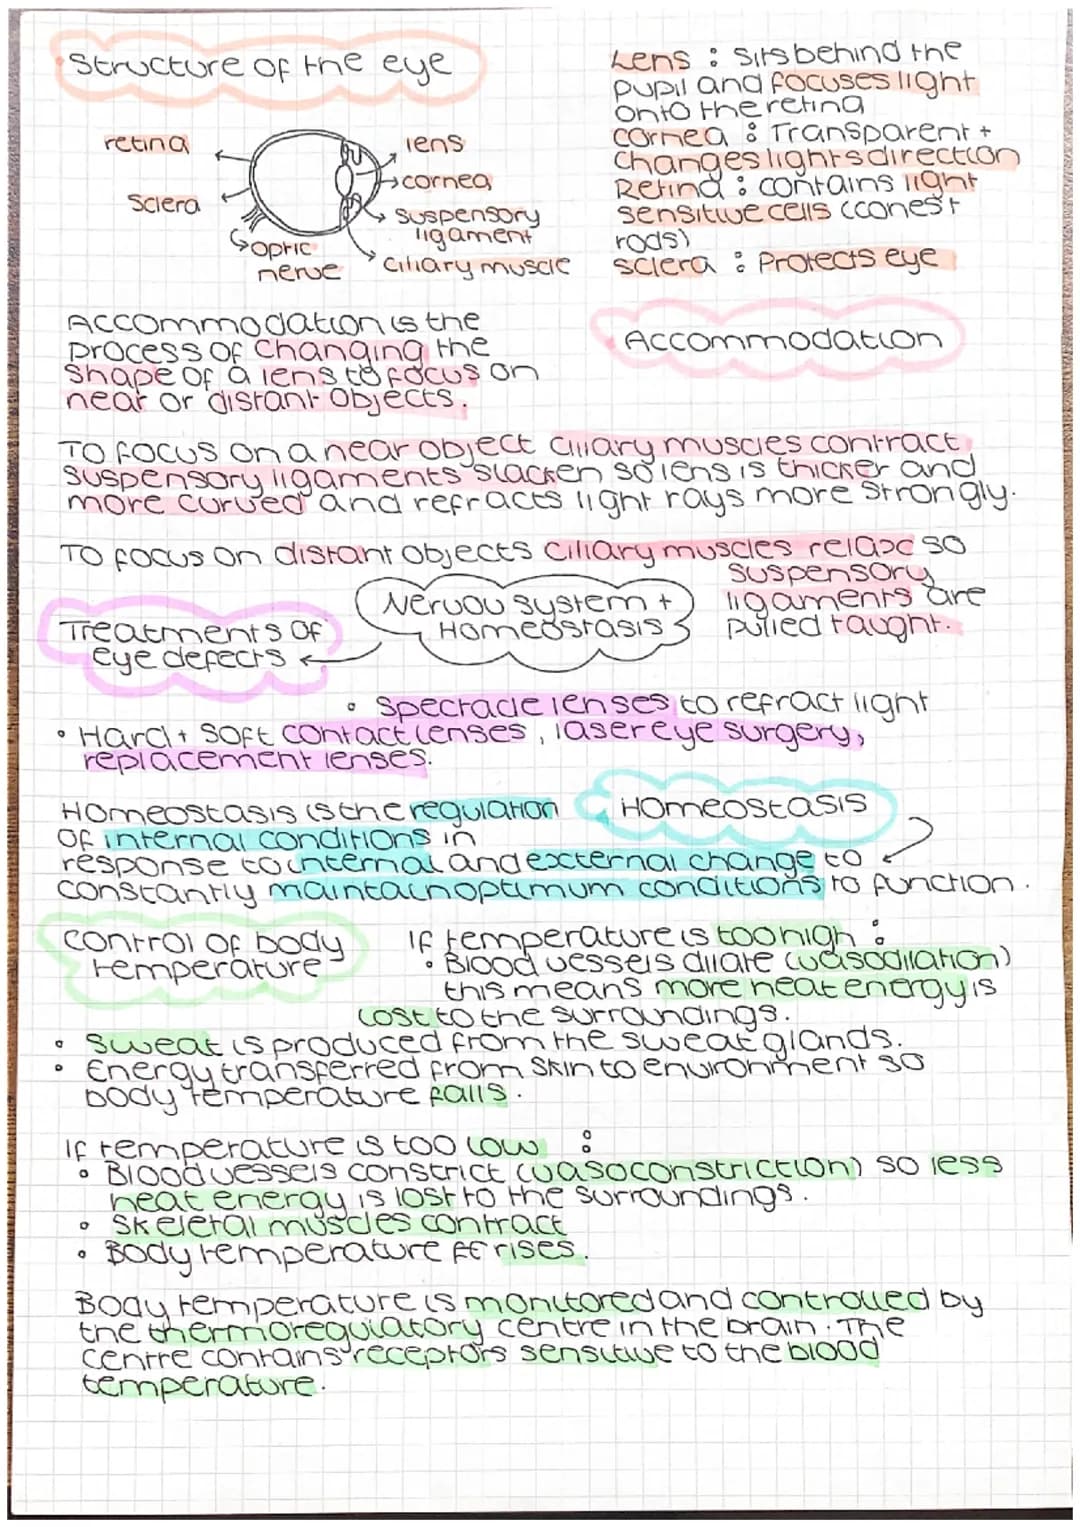 Structure of the eye
retina
lens
cornea
sclera
suspensory
ligament
optic
nerve
ciliary muscle
Lens : sits behind the
pupil and focuses light
onto the retina
cornea : Transparent +
changes lights direction
Retina : contains light
sensitive cells (cones +
rods)
sclera : Protects eye
Accommodation
Accommodation is the
process of changing the
shape of a lens to focus on
near or distant objects.
To focus on a near object ciliary muscles contract,
suspensory ligaments slacken so lens is thicker and
more curved and refracts light rays more strongly.
To focus on distant objects ciliary muscles relax so
suspensory
ligaments are
pulled taught.
Nervou system +
Homeostasis
Treatments of
eye defects
• Spectacle lenses to refract light
• Hard + soft contact lenses, laser eye surgery,
replacement lenses.
Homeostasis
Homeostasis is the regulation
of internal conditions in
response to internal and external change to
constantly maintain optimum conditions to function.
control of body
temperature
If temperature is too high :
• Blood vessels dilate (vasodilation)
this means more heat energy is
lost to the surroundings.
• Sweat is produced from the sweat glands.
• Energy transferred from skin to environment so
body temperature falls.
If temperature is too low :
• Blood vessels constrict (vasoconstriction) so less
heat energy is lost to the surroundings.
• Skeletal muscles contract
• Body temperature rises.
Body temperature is monitored and controlled by
the thermoregulatory centre in the brain. The
centre contains receptors sensitive to the blood
temperature.